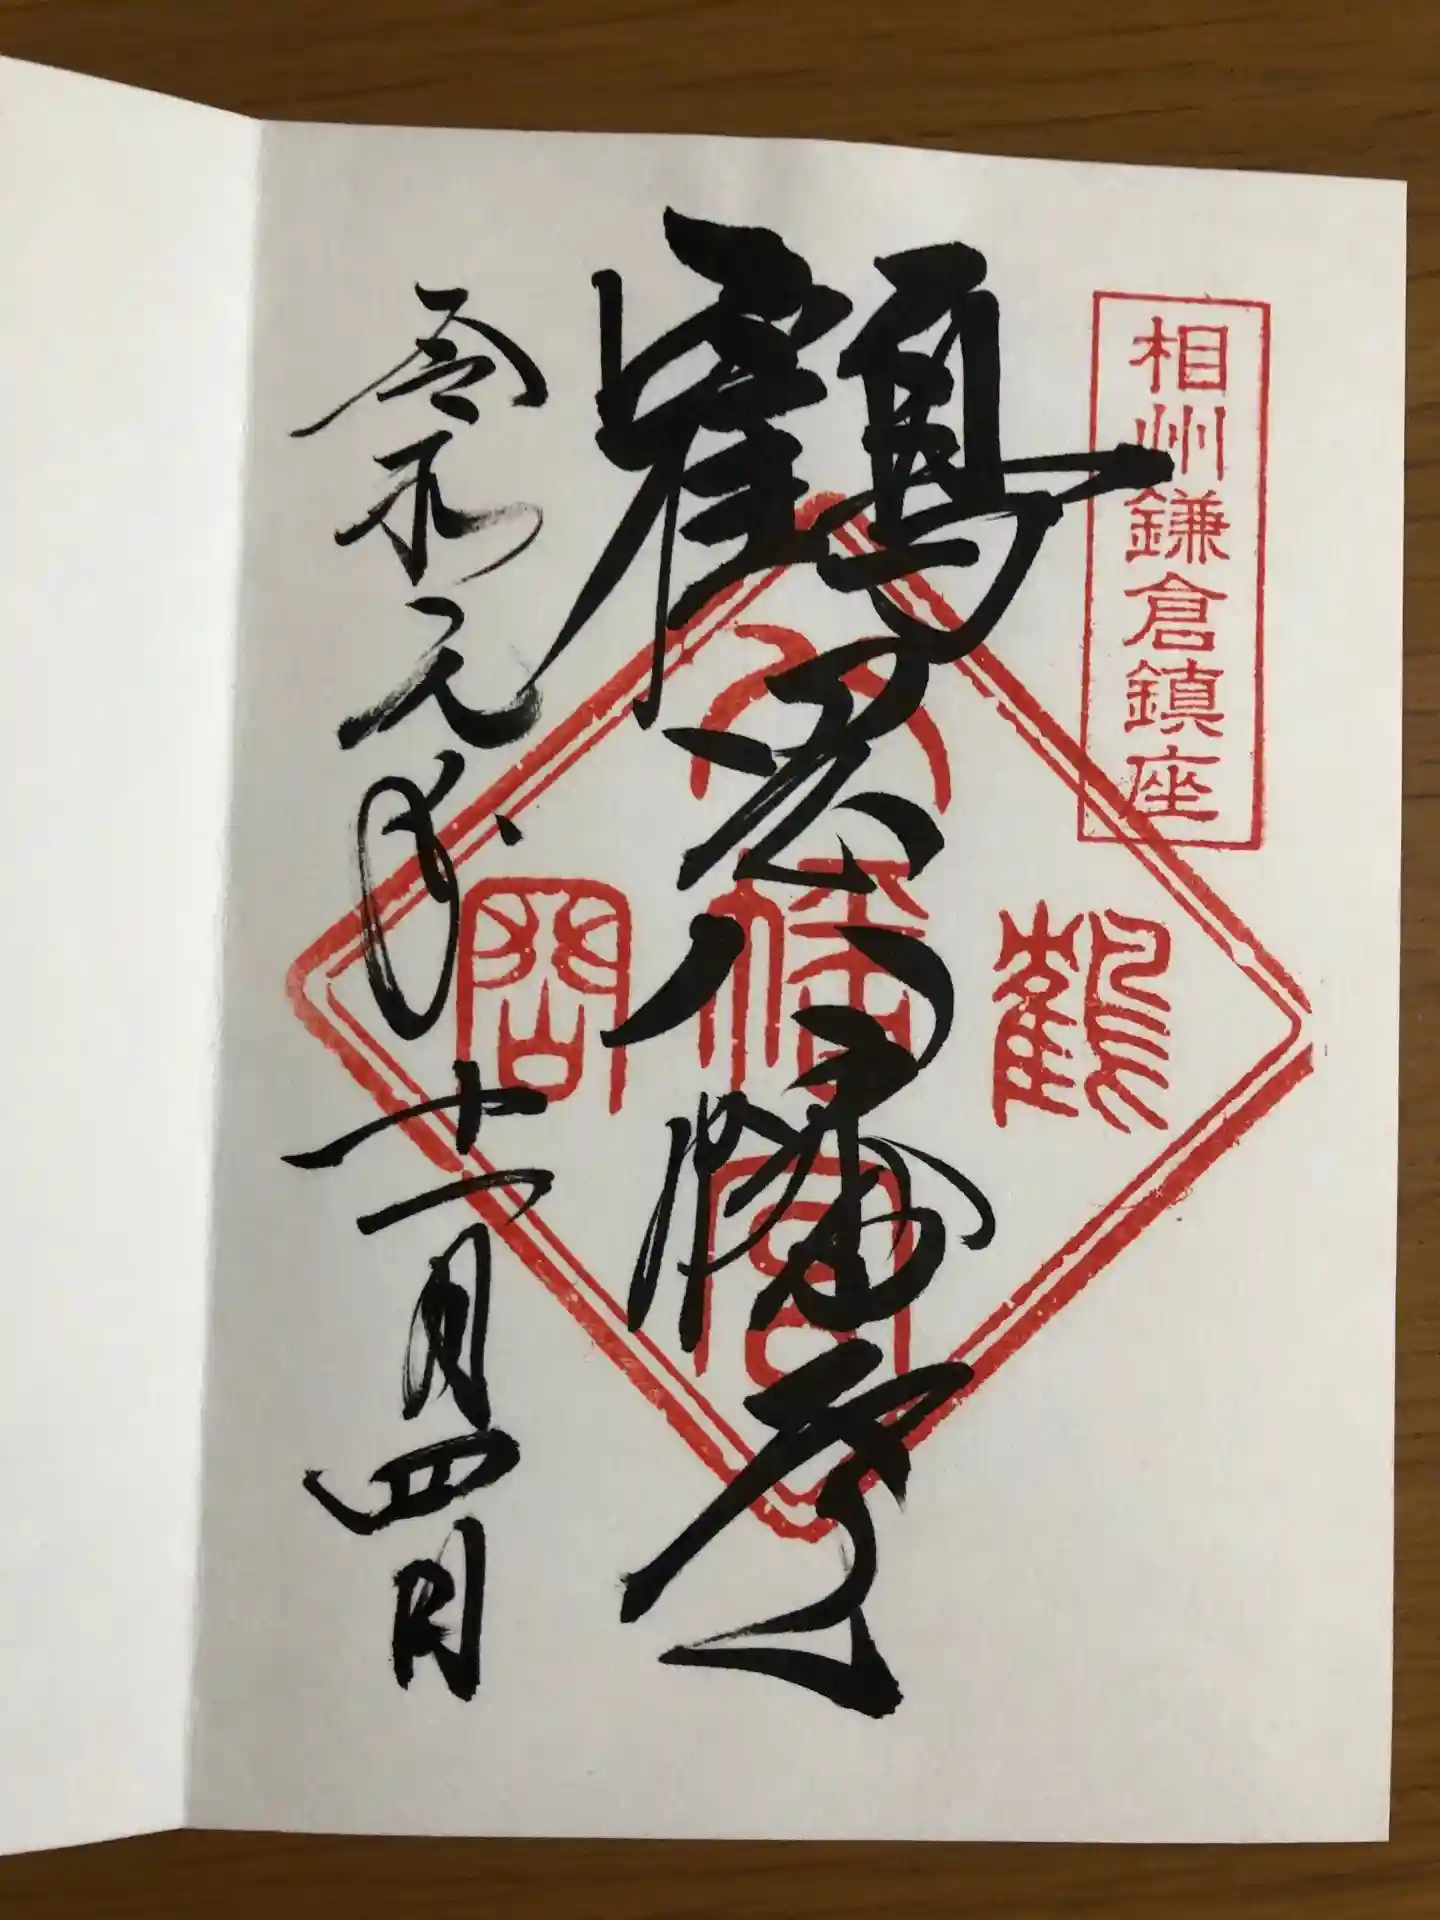 相州鎌倉鎮座
鶴岡八幡宮
鶴岡
八幡宮
令和元年十一月四日